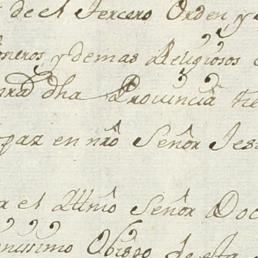 de el Tercero Orden y
oneros, y demas Religiosos
dha Provincia
paz en nro Señor Jes
r el Illmo Señor Doc
nissimo Obispo de esta